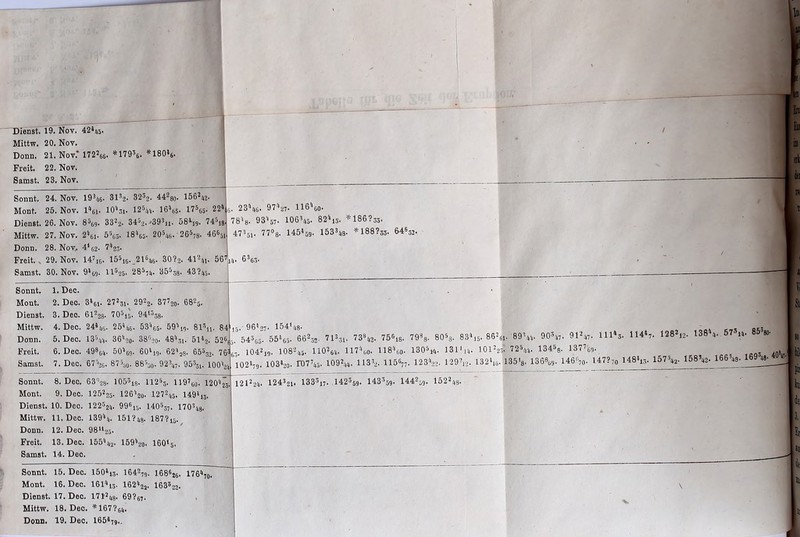 Dienst. 19. Nov. 42⁴₄₅.
Mittw. 20. Nov.
Donn. 21. Nov. 172²₆₆. *179³₆. *180⁴₆.
Freit. 22. Nov.
Samst. 23. Nov.
Sonnt. 24. Nov. 19³₄₆. 31⁵₂. 32⁵₂. 44²₈₀. 156²₄₂.
Mont. 25. Nov. 1⁴₆₁. 10⁴₃₁. 12⁵₄₄. 16⁴₆₅. 17⁵₆₅. 22⁴₄₆. 23⁴₄₆. 97⁴₂₇. 116⁴₆₀.
Dienst. 26. Nov. 8⁵₆₉. 33²₂. 34⁵₂. 39³₁₁. 58⁴₁₉. 74⁵₁₈. 78⁴₈. 93⁴₅₇. 106³₄₅. 82⁴₁₅. *186?₃₃.
Mittw. 27. Nov. 2⁴₆₁. 5⁵₆₅. 18⁴₆₅. 20⁵₄₆. 26⁵₇₈. 46⁶₅₁. 47³₅₁. 77⁹₈. 145⁴₅₉. 153³₄₈. *188?₃₃. 64⁶₃₂.
Donn. 28. Nov. 4⁴₆₂. 7⁴₂₅.
Freit. 29. Nov. 14⁷₁₆. 15⁵₁₆. 21⁶₄₆. 30?₅. 41²₄₁. 56⁷₁₄. 6³₆₅.
Samst. 30. Nov. 9⁴₆₉. 11⁵₂₅. 28⁵₇₄. 35⁵₅₈. 43?₄₅.
Sonnt. 1. Dec.
Mont. 2. Dec. 3⁴₆₁. 27²₃₁. 29²₂. 37⁷₂₀. 68²₅.
Dienst. 3. Dec. 61²₂₈. 70⁵₁₅. 94⁴⁵₅₈.
Mittw. 4. Dec. 24⁴₄₆. 25⁴₄₆. 53⁴₆₅. 59⁴₁₉. 81³₁₁. 84⁴₁₅. 96⁴₂₇. 154⁴₄₈.
Donn. 5. Dec. 13⁵₄₄. 36⁴₇₀. 38⁶₇₀. 48⁵₃₁. 51⁴₂. 52⁶₆₅. 54⁵₆₅. 55⁴₆₅. 66²₃₂. 71⁵₅₁. 73⁶₄₂. 75⁶₁₈. 79⁸₈. 80⁵₈. 83⁴₁₅. 86²₆₄. 89⁴₄₄. 90⁵₄₇. 91²₄₇. 111⁴₃. 114⁴₇. 128²₁₂. 138⁴₄. 57³₁₄. 85⁵₈₀.
Freit. 6. Dec. 49⁶₆₄. 50⁴₆₉. 60⁴₁₉. 62⁴₂₈. 65⁵₃₂. 76⁴₆₅. 104²₁₉. 108²₄₅. 110⁷₆₄. 117⁴₆₀. 118⁴₆₀. 130⁵₁₄. 131⁴₁₄. 101²₂₃. 72⁵₄₄. 134⁵₈. 137³₆₉.
Samst. 7. Dec. 67⁵₂₆. 87⁵₅₀. 88⁴₅₀. 92⁴₄₇. 95⁵₃₁. 100⁵₂₄. 102⁴₇₉. 103⁴₂₀. 107⁷₄₅. 109²₄₄. 113⁵₂. 115⁶₇. 123⁴₂₂. 129⁷₁₂. 132⁴₁₆. 135⁴₈. 136⁸₆₉. 146⁶₇₀. 147?₇₀ 148⁴₁₃. 157⁴₄₂. 158³₄₂. 166³₄₈. 169³₄₈.
Sonnt. 8. Dec. 63³₂₈. 105²₁₈. 112⁴₅. 119⁷₆₀. 120⁴₂₃. 121²₂₄. 124³₂₁. 133⁵₁₇. 142⁵₅₉. 143³₅₉. 144²₅₉. 152²₄₈.
Mont. 9. Dec. 125²₂₅. 126⁴₂₀. 127²₄₅. 149⁴₁₃.
Dienst. 10. Dec. 122⁵₂₄. 99⁶₁₅. 140⁵₅₇. 170³₄₈.
Mittw. 11. Dec. 139⁴₄. 151?₄₈. 187?₁₅.
Donn. 12. Dec. 98¹¹₂₅.
Freit. 13. Dec. 155⁴₄₂. 159⁴₂₀. 160⁴₅.
Samst. 14. Dec.
Sonnt. 15. Dec. 150⁴₁₃. 164²₇₉. 168⁶₂₆. 176⁴₇₀.
Mont. 16. Dec. 161⁴₁₅. 162⁴₂₂. 163³₂₂.
Dienst. 17. Dec. 171²₄₈. 69?₆₇.
Mittw. 18. Dec. *167?₆₄.
Donn. 19. Dec. 165⁴₇₉.